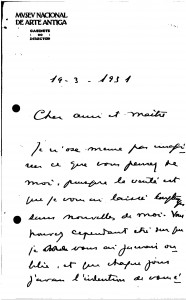 MVSEV NACIONAL
DE ARTE ANTIGA
GABINETE
DO
DIRECTOR
19-3-1951
Cher ami et maître
Je n'ose même pas
sur ce que vous pensez de
moi, puisque la verité est
que je vous ai laissé
sans nouvelle de moi. Vous
pouvez cependant etre sur que
je vous ai jamais ou
blié, et que chaque jour
j'avais l'intention de vous